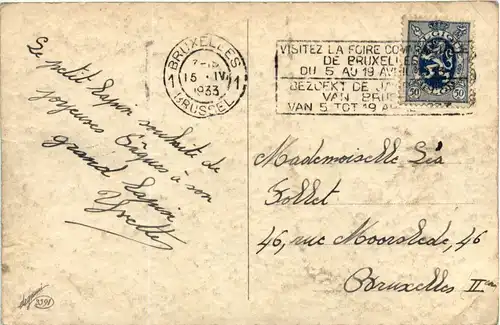 Le petit lapin souhaite de
joyeuses Pâques à son
grand lapin
Yvette
BRUXELLES
15 IV
1 1
1933
BRUSSEL
VISITEZ LA FOIRE COM
DE BRUXELLES
DU 5 AU 19 AVRIL
BEZOEKT DE
VAN BRUS
VAN 5 TOT 19 A
50 50
Mademoiselle Léa
Follet
46, rue Moorslede, 46
Bruxelles II
2391